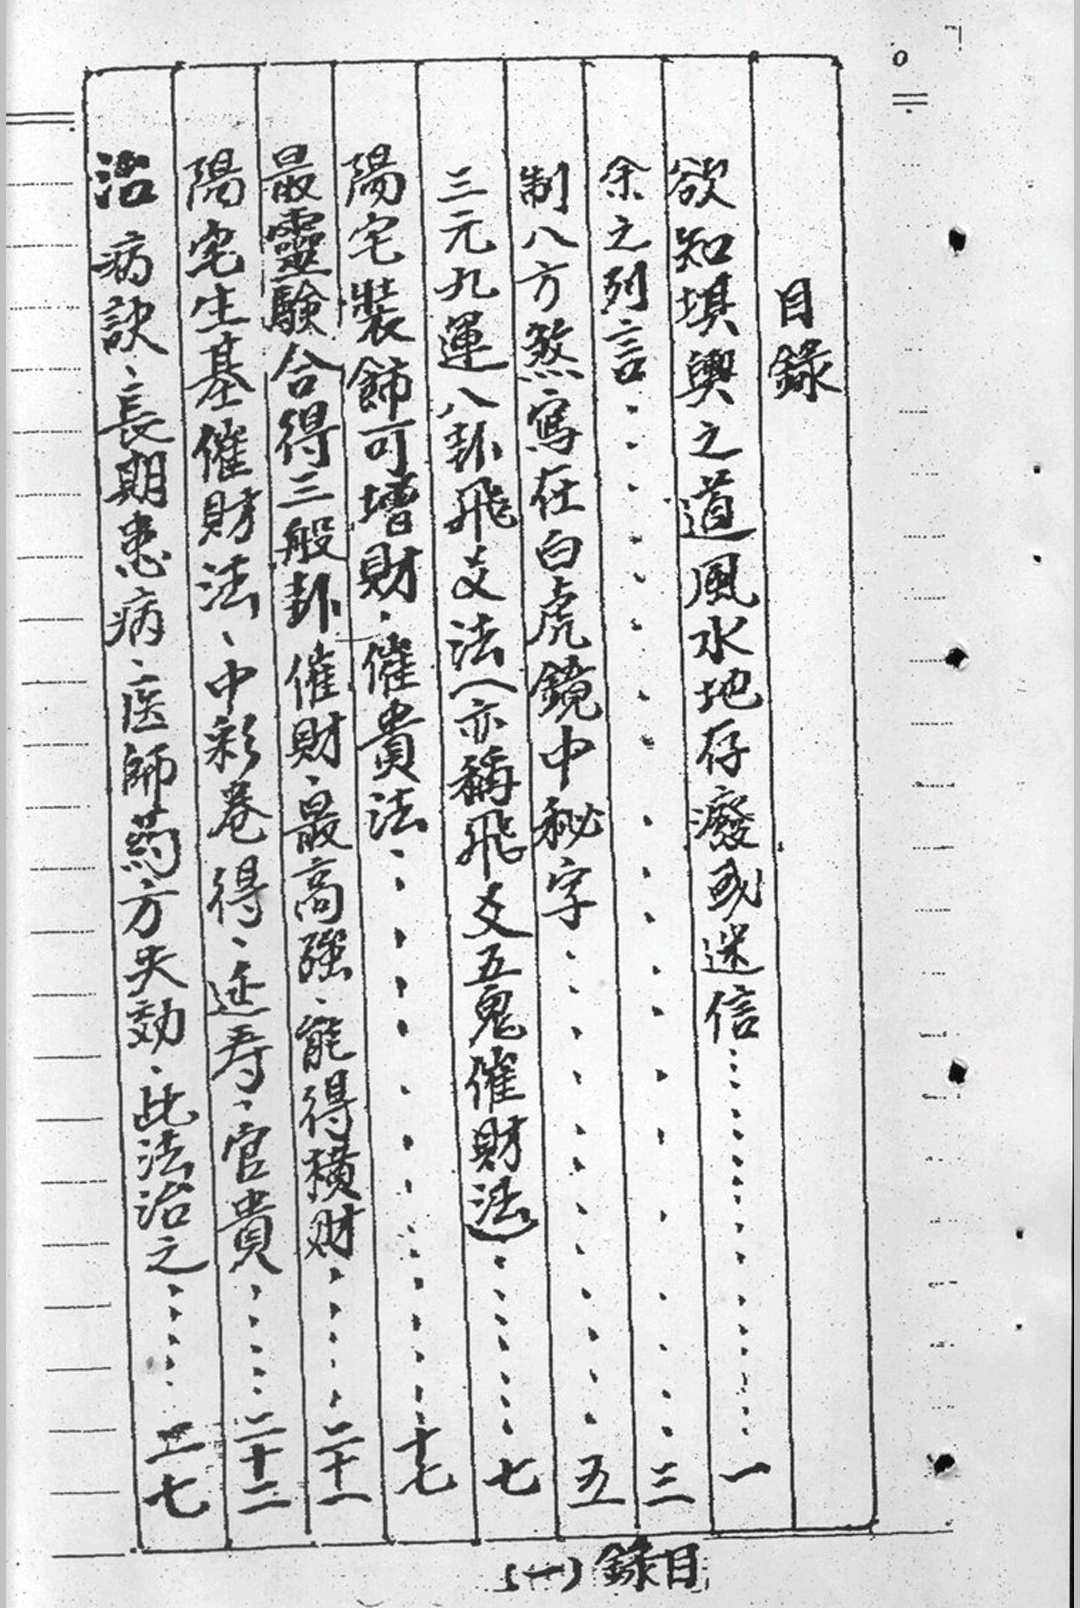 目錄
欲知堪輿之道風水地存癈或迷信……一
余之列言……三
制八方煞寫在白虎鏡中秘字……五
三元九運八卦飛爻法(亦稱飛爻五鬼催財法)……七
陽宅裝飾可增財、催貴法……十七
最靈驗合得三般卦催財、最高強、能得橫财……二十一
陽宅生基催財法、中彩卷得、延寿、官貴……二十二
治病訣、長期患病、医師药方失効、此法治之……二七
目錄(一)